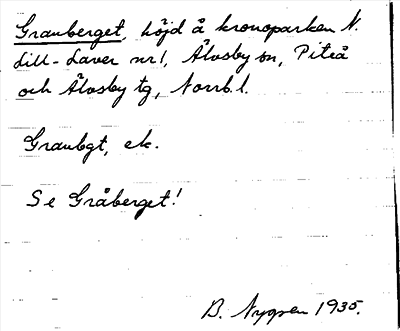 Grauberget, höjd å kronoparken N.
Lill-Laver nr 1, Älvsby sn, Piteå
och Älvsby tg, Norrb. l.
Graubgt, ek.
Se Gråberget!
B. Nygren 1935.